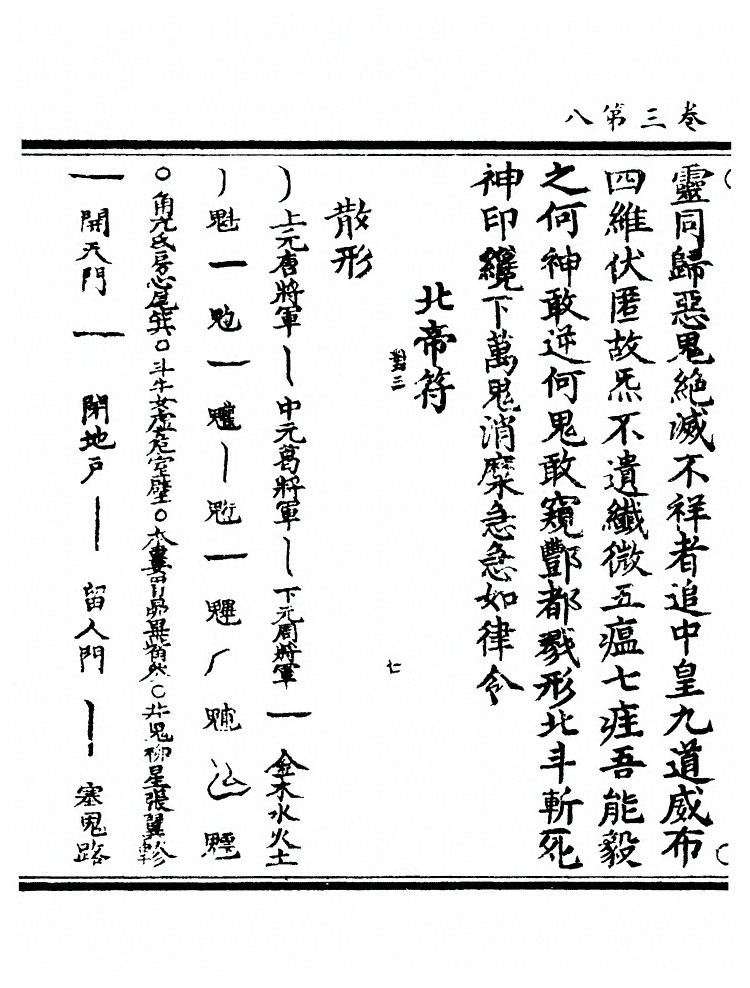 卷三第八
靈同歸惡鬼絶滅不祥者追中皇九道威布
四維伏匿故炁不遺纖微五瘟七疰吾能毅
之何神敢逆何鬼敢窺酆都戮形北斗斬死
神印纔下萬鬼消磨急急如律令
北帝符
對三
七
散形
上元唐將軍 中元葛將軍 下元周將軍 金木水火土
魁
○角亢氐房心尾箕○斗牛女虛危室壁○奎婁胃昴畢觜參○井鬼柳星張翼軫
開天門 閉地戶 留人門 塞鬼路